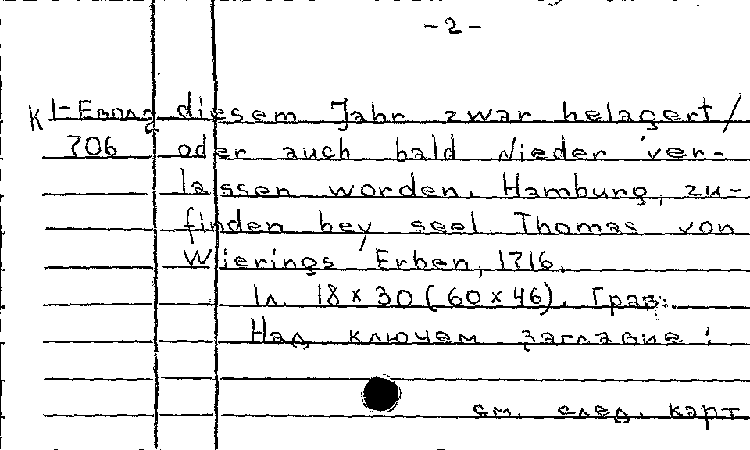 -2-
К 1-Европ diesem Jahr zwar belagert/
706 oder auch bald Nieder ver-
lassen worden. Hamburg, zu-
finden bey seel Thomas von
Wierings Erben, 1716.
1л. 18 x 30 (60 x 46). Грав.
Над ключем заглавие:
см. след. карт